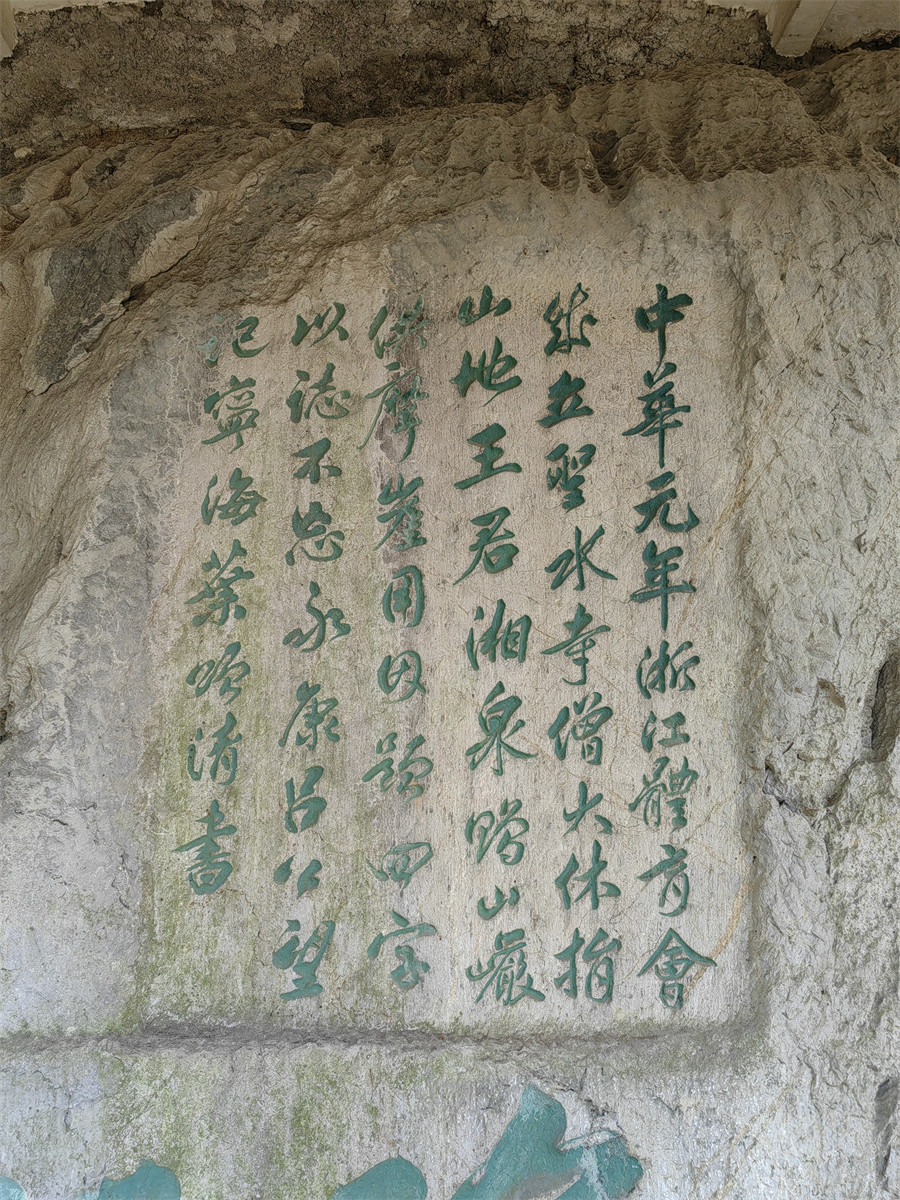 中華元年浙江體育會
成立聖水寺僧大休指
山地王君湘泉贈山巖
供摩崖用因題四字
以誌不忘永康呂公望
記寧海葉頌清書